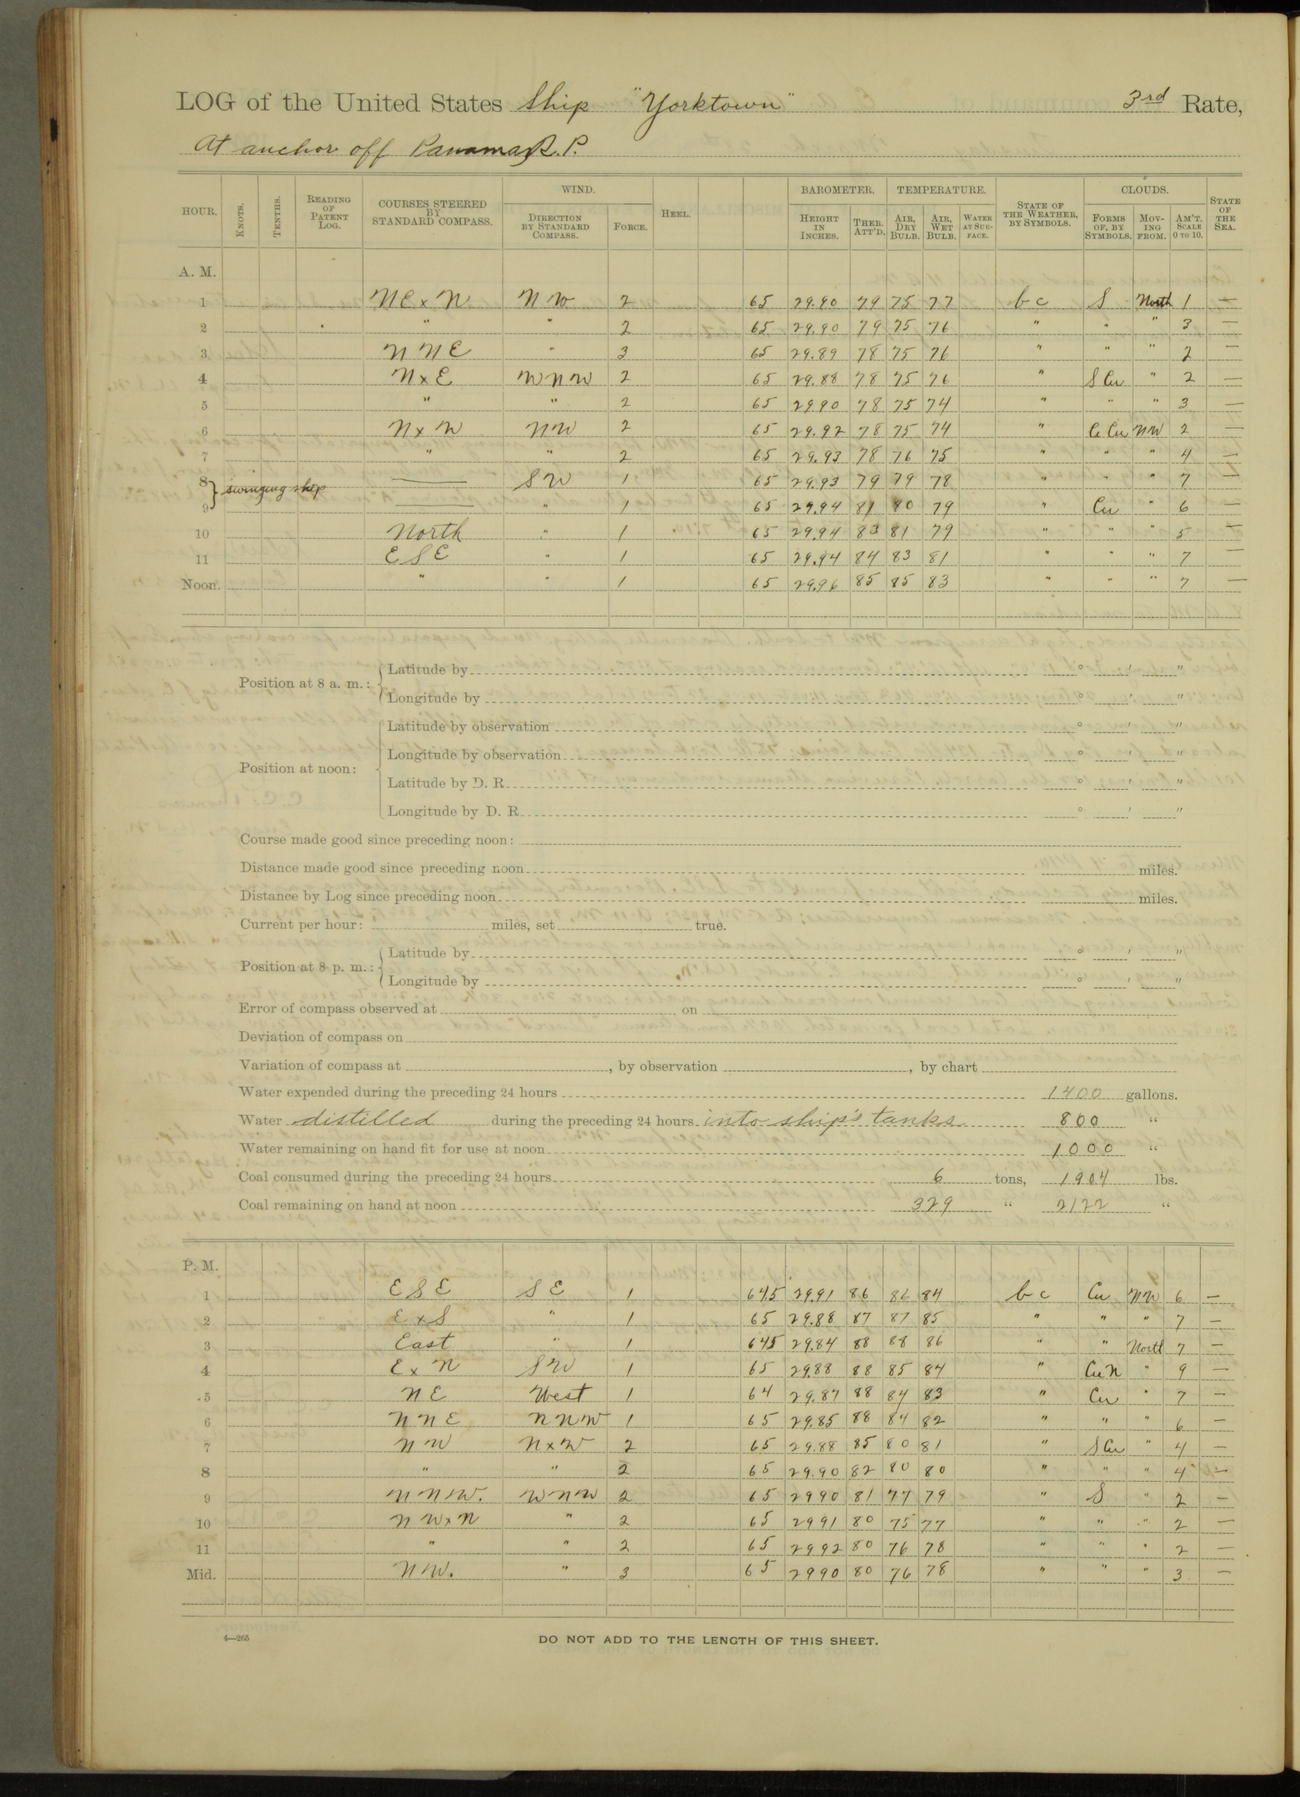 LOG of the United States Ship "Yorktown" 3rd Rate,
At anchor off Panama, R. P.
HOUR. KNOTS. TENTHS. READING OF PATENT LOG. COURSES STEERED BY STANDARD COMPASS. WIND. DIRECTION BY STANDARD COMPASS. FORCE. HEEL. BAROMETER. HEIGHT IN INCHES. THER. ATT'D. TEMPERATURE. AIR, DRY BULB. AIR, WET BULB. WATER AT SUR-FACE. STATE OF THE WEATHER, BY SYMBOLS. CLOUDS. FORMS OF, BY SYMBOLS. MOV-ING FROM. AM'T. SCALE 0 TO 10. STATE OF THE SEA.
A. M.
1 NE x N NW 2 65 29.90 79 75 77 b c S North 1 —
2 " " 2 65 29.90 79 75 76 " " " 3 —
3 NNE " 3 65 29.89 78 75 76 " " " 2 —
4 N x E WNW 2 65 29.88 78 75 76 " S Cu " 2 —
5 " " 2 65 29.90 78 75 74 " " " 3 —
6 N x W NW 2 65 29.92 78 75 74 " Ci Cu NW 2 —
7 " " 2 65 29.93 78 76 75 " " " 4 —
8 } swinging ship — SW 1 65 29.93 79 79 78 " " " 7 —
9 — " 1 65 29.94 81 80 79 " Cu " 6 —
10 North " 1 65 29.94 83 81 79 " " " 5 —
11 ESE " 1 65 29.94 84 83 81 " " " 7 —
Noon. " " 1 65 29.96 85 85 83 " " " 7 —
Position at 8 a. m.: Latitude by ° ' "
Longitude by ° ' "
Position at noon: Latitude by observation ° ' "
Longitude by observation ° ' "
Latitude by D. R. ° ' "
Longitude by D. R. ° ' "
Course made good since preceding noon:
Distance made good since preceding noon miles.
Distance by Log since preceding noon miles.
Current per hour: miles, set true.
Position at 8 p. m.: Latitude by ° ' "
Longitude by ° ' "
Error of compass observed at on
Deviation of compass on
Variation of compass at , by observation , by chart
Water expended during the preceding 24 hours 1400 gallons.
Water distilled during the preceding 24 hours into ship's tanks 800 "
Water remaining on hand fit for use at noon 1000 "
Coal consumed during the preceding 24 hours 6 tons, 1904 lbs.
Coal remaining on hand at noon 329 " 2122 "
P. M.
1 ESE SE 1 645 29.91 86 86 84 b c Cu NW 6 —
2 E x S " 1 65 29.88 87 87 85 " " " 7 —
3 East " 1 645 29.84 88 88 86 " " North 7 —
4 E x N SW 1 65 29.88 88 85 84 " Cu N " 9 —
5 NE West 1 64 29.87 88 84 83 " Cu " 7 —
6 NNE NNW 1 65 29.85 88 84 82 " " " 6 —
7 NW N x W 2 65 29.88 85 80 81 " S Cu " 4 —
8 " " 2 65 29.90 82 80 80 " " " 4 —
9 NNW. WNW 2 65 2990 81 77 79 " S " 2 —
10 NW x N " 2 65 2991 80 75 77 " " " 2 —
11 " " 2 65 2992 80 76 78 " " " 2 —
Mid. NW. " 3 65 2990 80 76 78 " " " 3 —
4—265
DO NOT ADD TO THE LENGTH OF THIS SHEET.